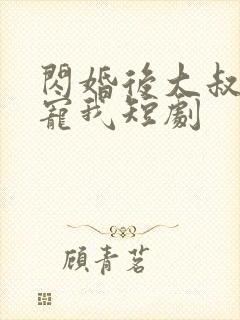 閃婚後大叔
寵我短劇
顧青茗